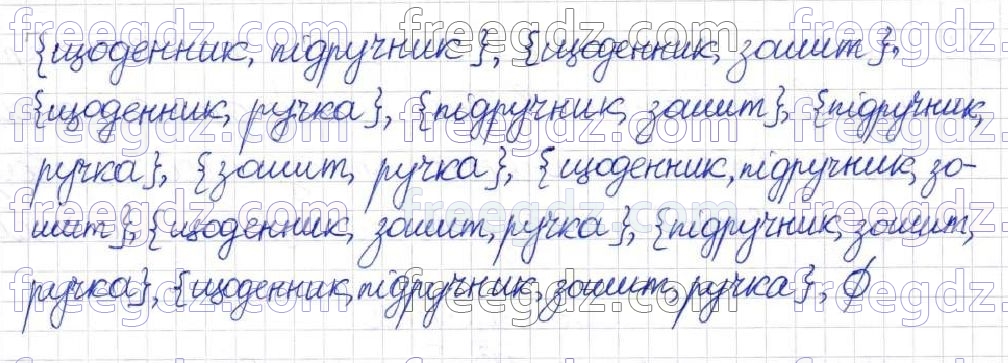 {щоденник, підручник}, {щоденник, зошит},
{щоденник, ручка}, {підручник, зошит}, {підручник,
ручка}, {зошит, ручка}, {щоденник, підручник, зо-
шит}, {щоденник, зошит, ручка}, {підручник, зошит,
ручка}, {щоденник, підручник, зошит, ручка}, ∅
freegdz.com